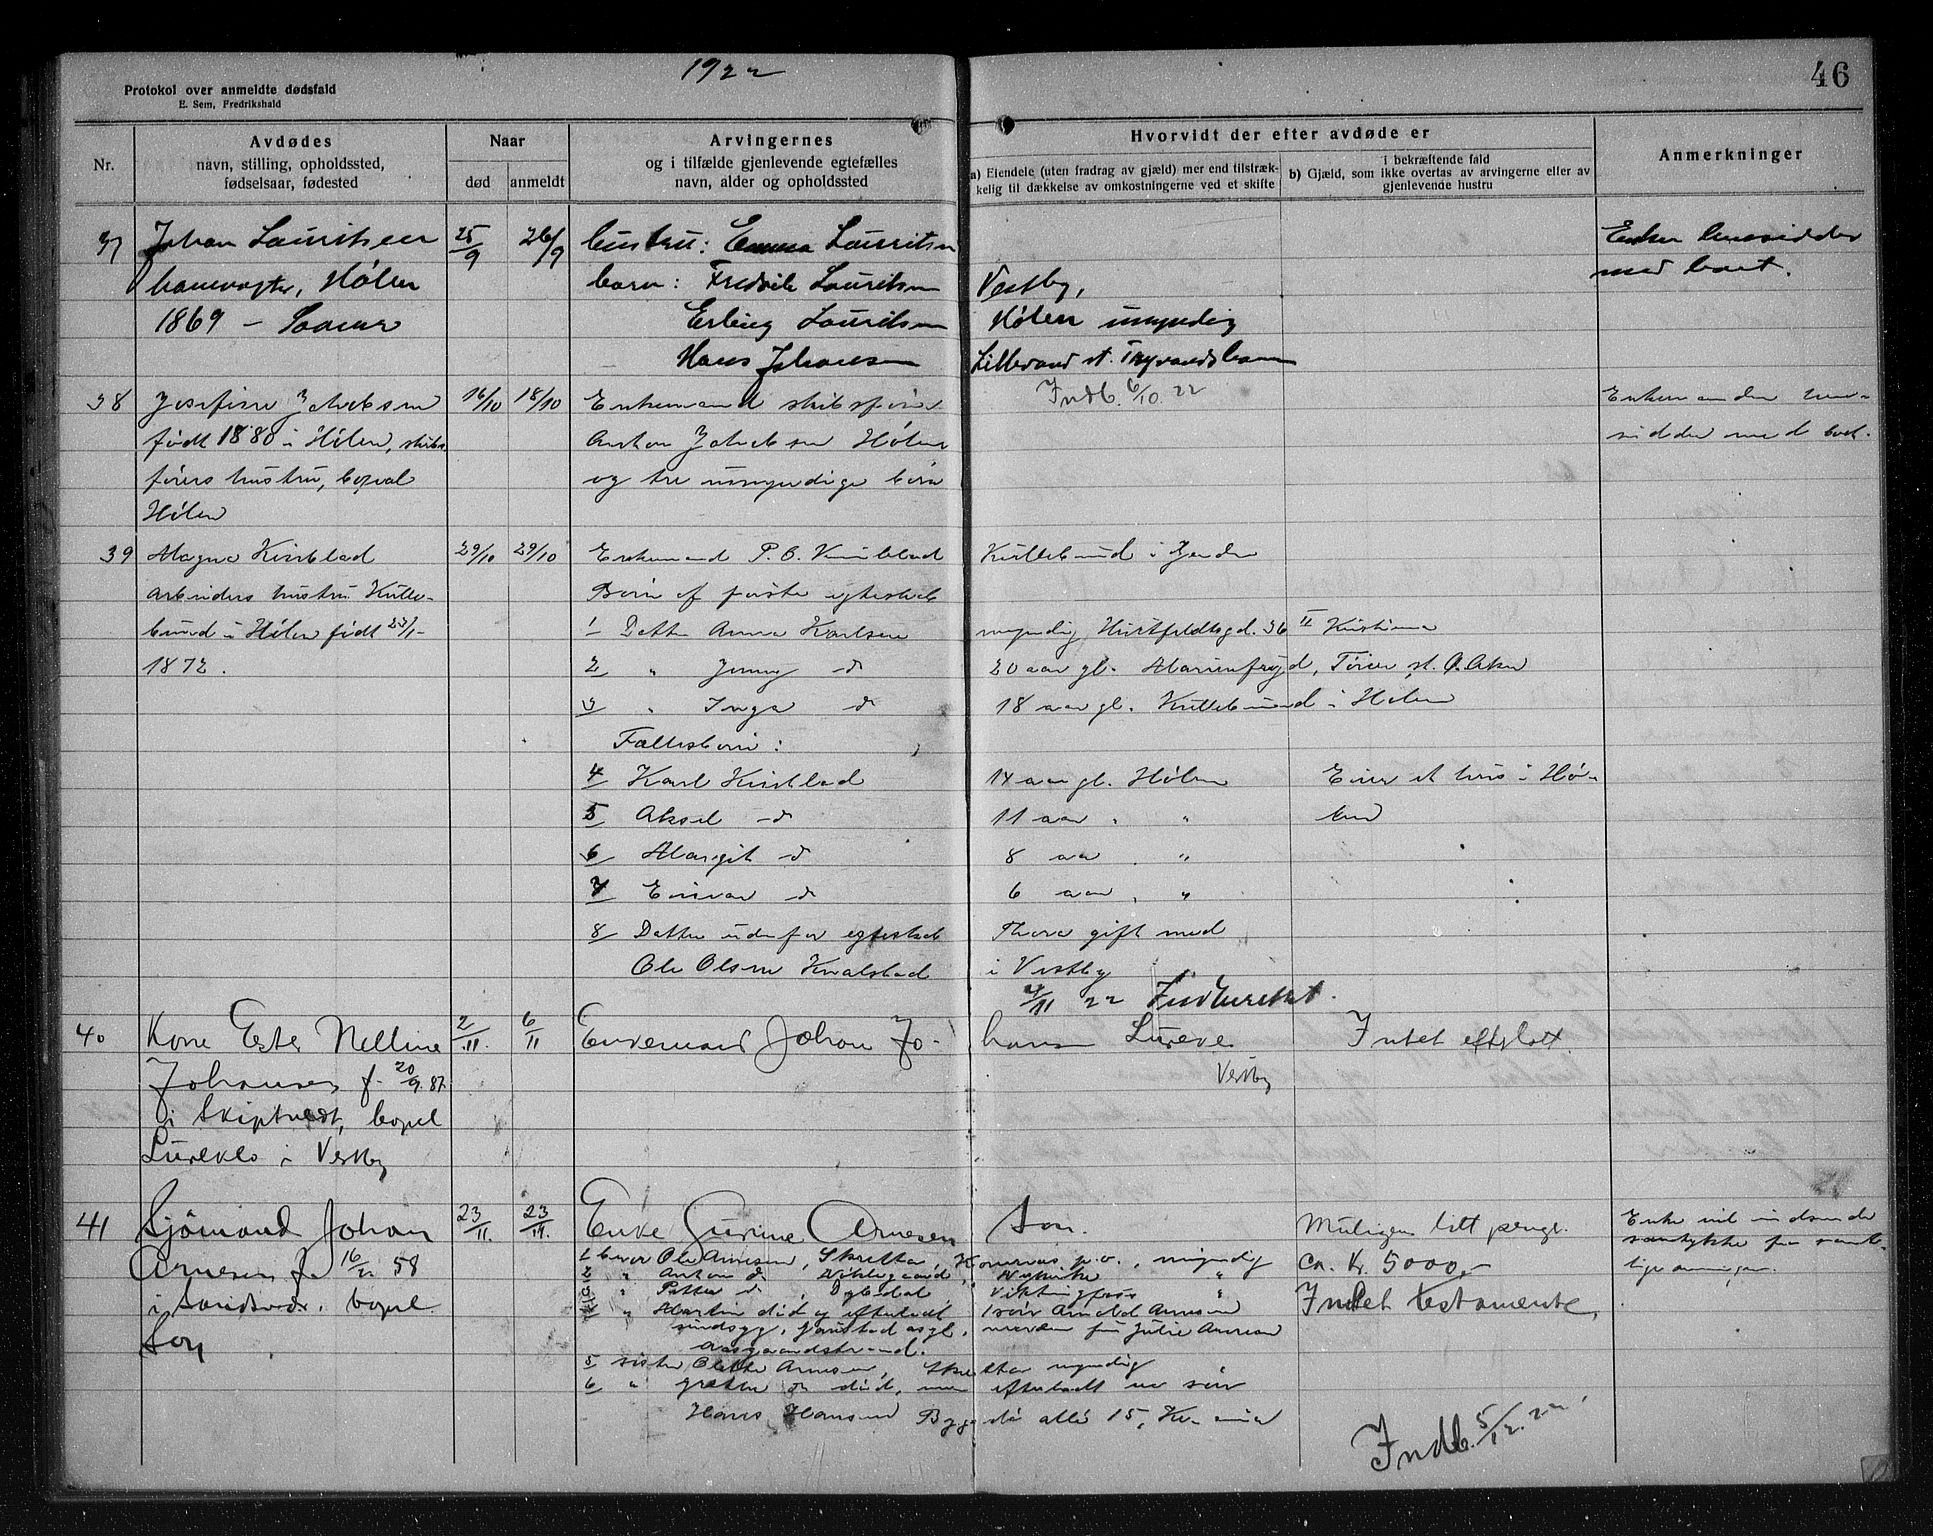 1922
46
Protokol over anmeldte dødsfald
E. Sem, Fredrikshald
Nr.
Avdødes
navn, stilling, opholdssted,
fødselsaar, fødested
Naar
død
anmeldt
Arvingernes
og i tilfælde gjenlevende egtefælles
navn, alder og opholdssted
Hvorvidt der efter avdøde er
a) Eiendele (uten fradrag av gjæld) mer end tilstræk-
kelig til dækkelse av omkostningerne ved et skifte
i bekræftende fald
b) Gjæld, som ikke overtas av arvingerne eller av
gjenlevende hustru
Anmerkninger
37 Johan Lauritsen 25/9 26/9 hustru: Emma Lauritsen Enken hensidder
banevogter, Hølen barn: Fredrik Lauritsen Vestby, med boet.
1869 – Saaner Erling Lauritsen Hølen umyndig
Hans Johansen Lillevand st. Tryvandsbanen
Indb. 6/10 22
38 Josefine Jakobsen 16/10 18/10 Enkemand skibsfører Enkemanden hen-
født 1880 i Hølen, skibs- Anton Jakobsen Hølen sidder med boet.
førers hustru, bopæl og tre umyndige børn
Hølen
39 Magna Kinblad 29/10 29/10 Enkemand P. O. Kinblad Kullebund i Hølen
arbeiders hustru Kulle- Børn af første egteskab
bund i Hølen født 23/1- 1 Datter Anna Karlsen myndig Huitfeldtsgd. 36 II Kristiania
1872. 2 " Jenny d 20 aar gl. Marienfryd, Tøien st. Ø. Aker
3 " Inga d 18 aar gl. Kullebund i Hølen
Fællesbørn:
4 Karl Kinblad 14 aar gl. Hølen Eier et hus i Hø-
5 Aksel d 11 aar " " len
6 Margit d 8 aar " "
7 Einar d 6 aar " "
8 Datter udenfor egteskab Thora gift med
Ole Olsen Kvalstad i Vestby
4/11 22 Indberettet.
40 Kone Ester Nelline 2/11. 6/11 Enkemand Johan Jo- hansen Intet efterlatt.
Johansen f. 20/9. 87. Vestby
i Skiptvedt, bopel
i Vestby
41 Sjømand Johan 23/11. 23/11. Enke Gurine Arnesen Son. Muligens litt penge. Enke vil indsende
Arnesen f. 16/ 58 1 bror Ole Arnesen, Skretta, myndig ca. Kr. 5000,- samtykke fra samt-
i Sandsvær. bopel 2 " Anton d " Intet testamente. lige arvinger.
Son 3 " Petter d Vikingfoss "
4 " Martin død og efterladt 1 søn Arnold Arnesen
sindssyg, asyl, Julie Arnesen
Aasgaardstrand.
5 søster Olette Arnesen, myndig "
6 " d død, men efterladt en søn
Hans Hansen Bygdø allé 15, Kr.ania
Indb. 5/12. 22.